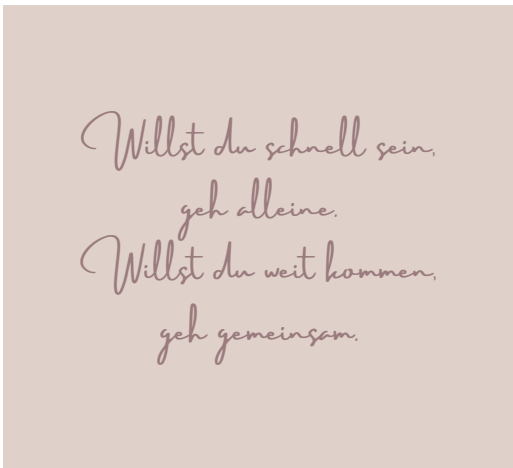 Willst du schnell sein,
geh alleine.
Willst du weit kommen,
geh gemeinsam.